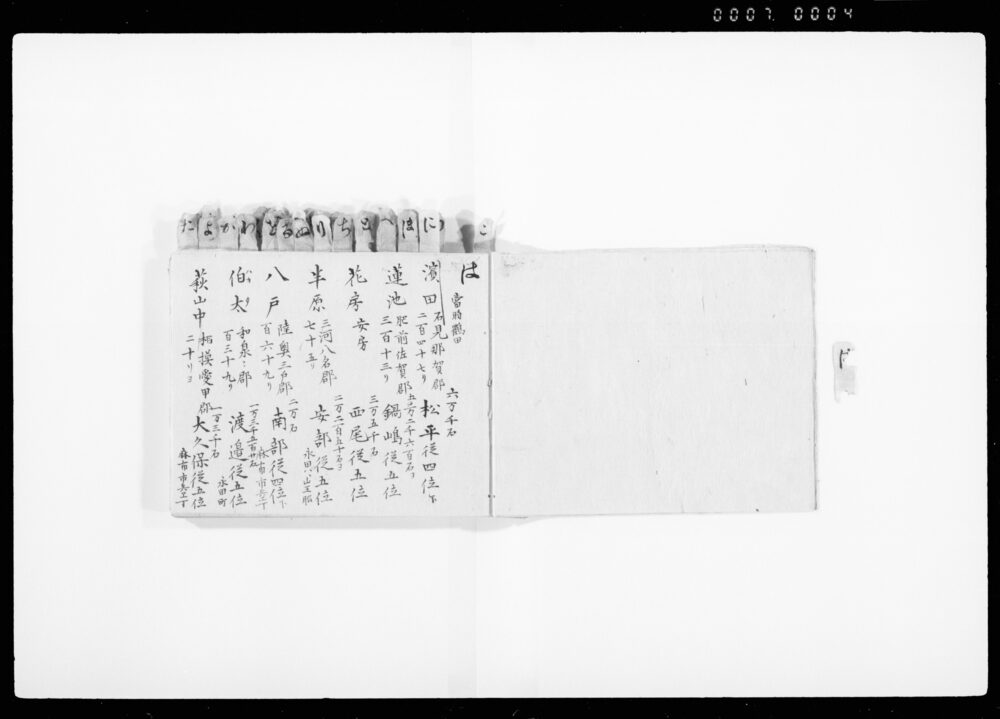 0007 0004
に
ほ
へ
と
ち
り
ぬ
る
を
わ
か
よ
た
は
濱田 當時鶴田
石見那賀郡 六万千石
二百四十七り 松平従四位下
蓮池 肥前佐賀郡 五万二千六百石
三百十三り 鍋嶋従五位
花房 安房 三万五千石
西尾従五位
半原 三河八名郡 二万二百五十石
七十五り 安部従五位 永田山王
八戸 陸奥三戸郡 二万石
百六十九り 南部従四位下 麻布市兵ヱ丁
伯太 和泉〻郡
百三十九り 渡邉従五位 永田町
荻山中 相摸愛甲郡 一万三千石
二十り 大久保従五位 麻布市兵ヱ丁